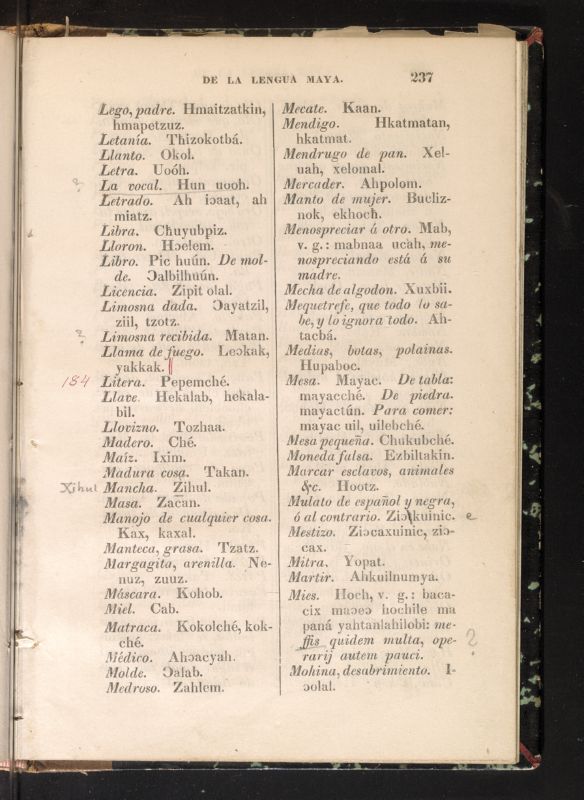 DE LA LENGUA MAYA. 237
Lego, padre. Hmaitzatkin,
hmapetzuz.
Letanía. Thizokotbá.
Llanto. Okol.
Letra. Uoóh.
?
La vocal. Hun uooh.
Letrado. Ah iɔaat, ah
miatz.
Libra. Chuyubpiz.
Lloron. Hɔelem.
Libro. Pic huún. De mol-
de. Ɔalbilhuún.
Licencia. Zipit olal.
Limosna dada. Ɔayatzil,
ziil, tzotz.
?
Limosna recibida. Matan.
Llama de fuego. Leɔkak,
yakkak.
184
Litera. Pepemché.
Llave. Hekalab, hekala-
bil.
Llovizno. Tozhaa.
Madero. Ché.
Maíz. Ixim.
Madura cosa. Takan.
Xihul
Mancha. Zihul.
Masa. Zacan.
Manojo de cualquier cosa.
Kax, kaxal.
Manteca, grasa. Tzatz.
Margagita, arenilla. Ne-
nuz, zuuz.
Máscara. Kohob.
Miel. Cab.
Matraca. Kokolché, kok-
ché.
Médico. Ahɔacyah.
Molde. Ɔalab.
Medroso. Zahlem.
Mecate. Kaan.
Mendigo. Hkatmatan,
hkatmat.
Mendrugo de pan. Xel-
uah, xelomal.
Mercader. Ahpolom.
Manto de mujer. Bucliz-
nok, ekhoch.
Menospreciar á otro. Mab,
v. g.: mabnaa ucah, me-
nospreciando está á su
madre.
Mecha de algodon. Xuxbii.
Mequetrefe, que todo lo sa-
be, y lo ignora todo. Ah-
tacbá.
Medias, botas, polainas.
Hupaboc.
Mesa. Mayac. De tabla:
mayacché. De piedra.
mayactún. Para comer:
mayac uil, uilebché.
Mesa pequeña. Chukubché.
Moneda falsa. Ezbiltakin.
Marcar esclavos, animales
&c. Hootz.
Mulato de español y negra,
ó al contrario. Ziɔkuinic.
e
Mestizo. Ziɔcaxuinic, ziɔ-
cax.
Mitra. Yopat.
Martir. Ahkuilnumya.
Mies. Hoch, v. g.: baca-
cix maɔeɔ hochile ma
paná yahtanlahilobi: me-
ffis quidem multa, ope-
rarij autem pauci.
?
Mohina, desabrimiento. I-
ɔolal.